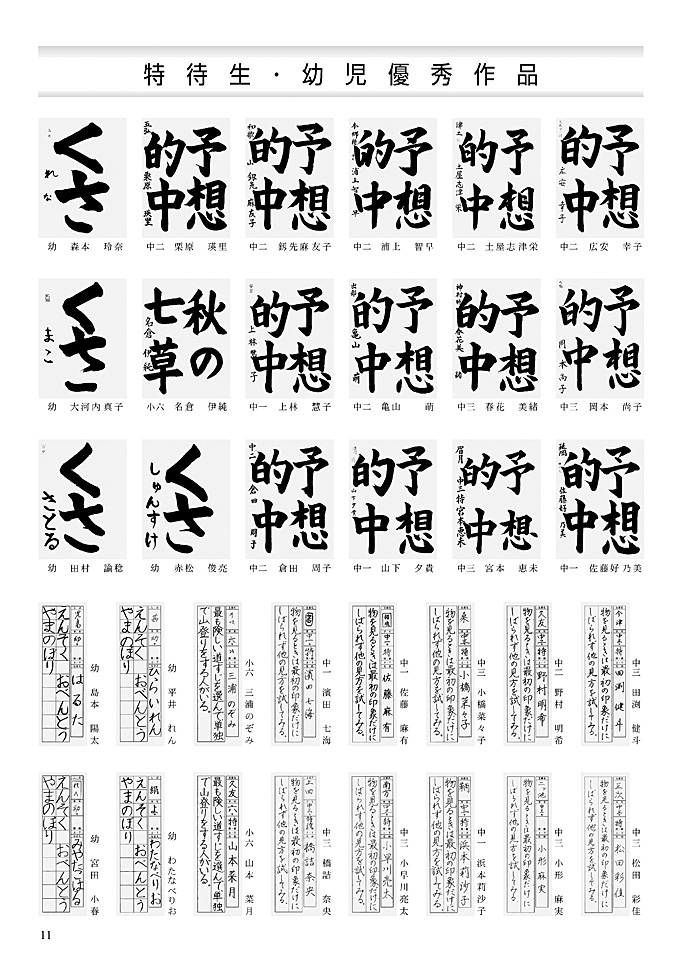 特待生・幼児優秀作品
予想的中
中二 広安 幸子
予想的中
中二 土屋志津栄
予想的中
中二 浦上 智早
予想的中
中二 釼先麻友子
予想的中
中二 栗原 瑛里
くさ
れな
幼 森本 玲奈
予想的中
岡本尚子
中三 岡本 尚子
予想的中
中三 春花 美緒
予想的中
亀山 萌
中二 亀山 萌
予想的中
上林慧子
中一 上林 慧子
秋の七草
名倉伊純
小六 名倉 伊純
くさ
まこ
幼 大河内真子
予想的中
佐藤好乃美
中一 佐藤好乃美
予想的中
眉月 中三特 宮本恵未
中三 宮本 恵未
予想的中
山下夕貴
中一 山下 夕貴
予想的中
中二 倉田 周子
中二 倉田 周子
くさ
しゅんすけ
幼 赤松 俊亮
くさ
さとる
幼 田村 諭稔
中三 田渕 健斗
今津 中三特 田渕健斗
物を見るときは最初の印象だけに
しばられず他の見方を試してみる。
中二 野村 明希
久友 中二特 野村明希
物を見るときは最初の印象だけに
しばられず他の見方を試してみる。
中三 小橋菜々子
小橋菜々子
物を見るときは最初の印象だけに
しばられず他の見方を試してみる。
中一 佐藤 麻有
佐藤麻有
物を見るときは最初の印象だけに
しばられず他の見方を試してみる。
中一 濱田 七海
濱田七海
物を見るときは最初の印象だけに
しばられず他の見方を試してみる。
小六 三浦のぞみ
三浦のぞみ
最も険しい道すじを選んで単独
で山登りをする人がいる。
幼 平井 れん
ひらいれん
えんそく おべんとう
やまのぼり
幼 島本 陽太
はるた
えんそく おべんとう
やまのぼり
中三 松田 彩佳
松田彩佳
物を見るときは最初の印象だけに
しばられず他の見方を試してみる。
中三 小形 麻実
小形麻実
物を見るときは最初の印象だけに
しばられず他の見方を試してみる。
中一 浜本莉沙子
浜本莉沙子
物を見るときは最初の印象だけに
しばられず他の見方を試してみる。
中三 小早川亮太
南方 小早川亮太
物を見るときは最初の印象だけに
しばられず他の見方を試してみる。
中三 橋詰 奈央
橋詰奈央
物を見るときは最初の印象だけに
しばられず他の見方を試してみる。
小六 山本 菜月
久友 六特 山本菜月
最も険しい道すじを選んで単独
で山登りをする人がいる。
幼 わたなべりお
わたなべりお
えんそく おべんとう
やまのぼり
幼 宮田 小春
みやたこはる
えんそく おべんとう
やまのぼり
11